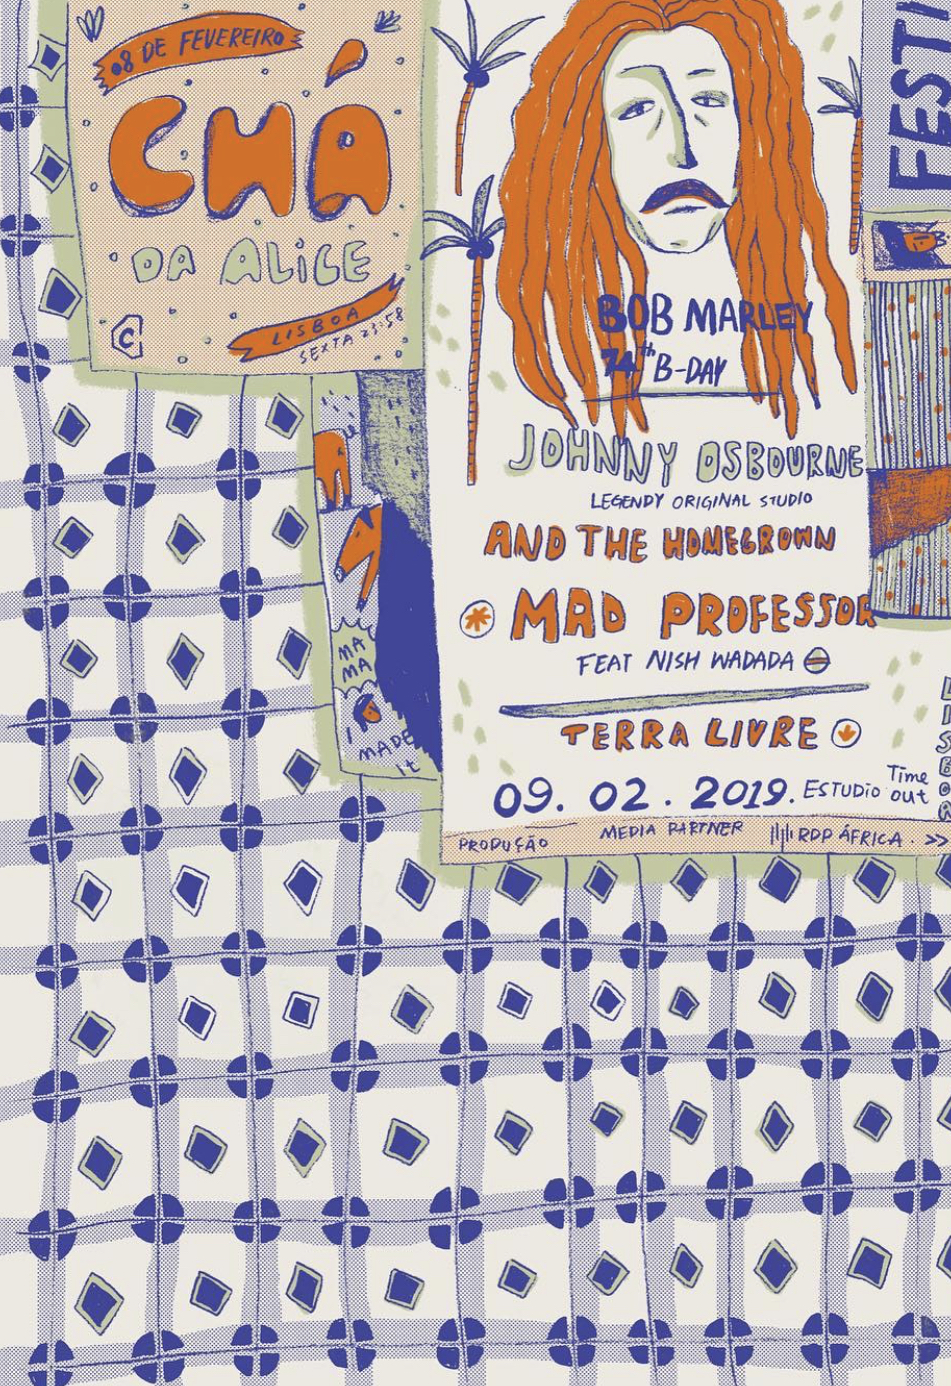 08 DE FEVEREIRO
CHÁ
DA ALiCE
LISBOA
SEXTA 23:58
C
FESTI
BOB MARLEY
74th B-DAY
JOHNNY OSBOURNE
LEGENDY ORIGINAL STUDIO
AND THE HOMEGROWN
MAD PROFESSOR
FEAT NISH WADADA
TERRA LIVRE
09. 02. 2019. ESTUDIO Time out
PRODUÇÃO MEDIA PARTNER RDP ÁFRICA. >>
MA
MA
I
MADE
It